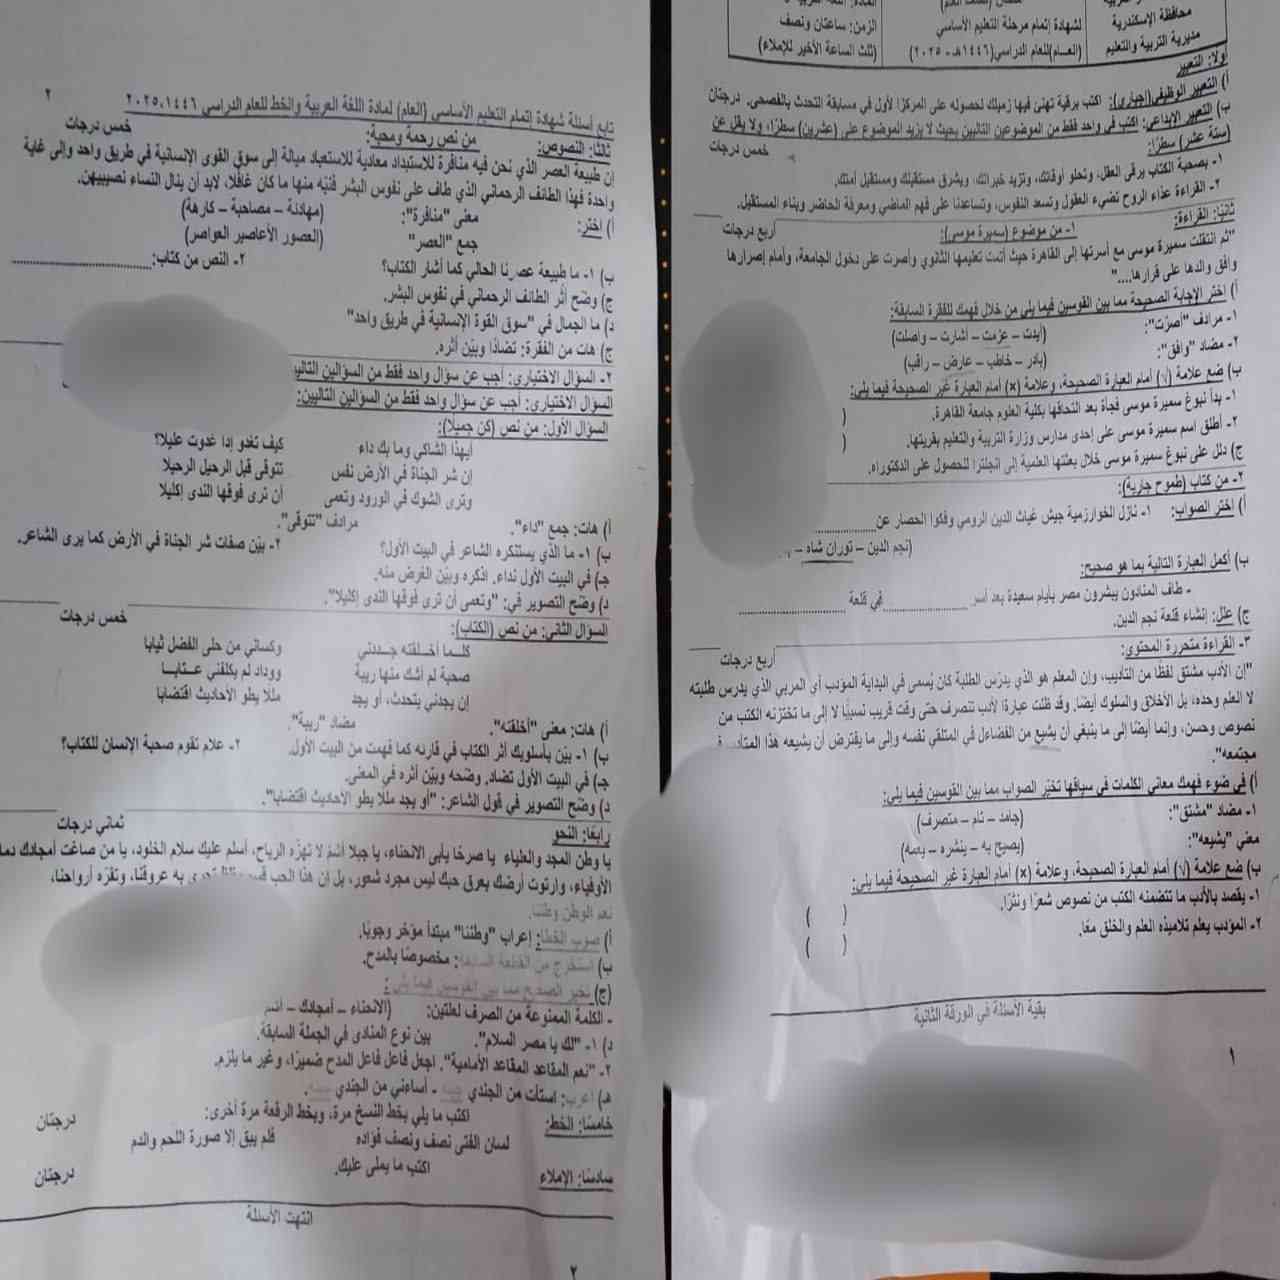 محافظة الإسكندرية
مديرية التربية والتعليم
لشهادة إتمام مرحلة التعليم الأساسي
(العـــام)للعام الدراسي(١٤٤٦هـ - ٢٠٢٥)
الزمن: ساعتان ونصف
(ثلث الساعة الأخير للإملاء)
ولا: التعبير
أ) التعبير الوظيفي(إجباري): اكتب برقية تهنئ فيها زميلك لحصوله على المركز الأول في مسابقة التحدث بالفصحى. درجتان
ب) التعبير الإبداعي: اكتب في واحد فقط من الموضوعين التاليين بحيث لا يزيد الموضوع على (عشرين) سطرًا، ولا يقل عن
(ستة عشر) سطرًا: خمس درجات
١- بصحبة الكتاب يرقى العقل، وتحلو أوقاتك، وتزيد خبراتك، ويشرق مستقبلك ومستقبل أمتك.
٢- القراءة غذاء الروح تضيء العقول وتسعد النفوس، وتساعدنا على فهم الماضي ومعرفة الحاضر وبناء المستقبل.
ثانيًا: القراءة: ١- من موضوع (سميرة موسى): أربع درجات
"ثم انتقلت سميرة موسى مع أسرتها إلى القاهرة حيث أتمت تعليمها الثانوي وأصرت على دخول الجامعة، وأمام إصرارها
وافق والدها على قرارها...."
أ) اختر الإجابة الصحيحة مما بين القوسين فيما يلي من خلال فهمك للفقرة السابقة:
١- مرادف "أصرّت": (أيدت – عزمت – أشارت – واصلت)
٢- مضاد "وافق": (بادر – خاطب – عارض – راقب)
ب) ضع علامة (√) أمام العبارة الصحيحة، وعلامة (×) أمام العبارة غير الصحيحة فيما يلي:
١- بدأ نبوغ سميرة موسى فجأة بعد التحاقها بكلية العلوم جامعة القاهرة. (
٢- أطلق اسم سميرة موسى على إحدى مدارس وزارة التربية والتعليم بقريتها. (
ج) دلل على نبوغ سميرة موسى خلال بعثتها العلمية إلى انجلترا للحصول على الدكتوراه.
٢- من كتاب (طموح جارية):
أ) اختر الصواب: ١- نازل الخوارزمية جيش غياث الدين الرومي وفكوا الحصار عن
(نجم الدين – توران شاه –
ب) أكمل العبارة التالية بما هو صحيح:
- طاف المنادون يبشرون مصر بأيام سعيدة بعد أسر .................... في قلعة ....................
ج) علل: إنشاء قلعة نجم الدين.
٣- القراءة متحررة المحتوى: أربع درجات
"إن الأدب مشتق لفظًا من التأديب، وإن المعلم هو الذي يدرّس الطلبة كان يُسمى في البداية المؤدب أي المربي الذي يدرس طلبته
لا العلم وحده، بل الأخلاق والسلوك أيضًا. وقد ظلت عبارة الأدب تنصرف حتى وقت قريب نسبيًا لا إلى ما تختزنه الكتب من
نصوص وحسن، وإنما أيضًا إلى ما ينبغي أن يشيع من الفضائل في المتلقي نفسه وإلى ما يفترض أن يشيعه هذا المتأدب
مجتمعه".
أ) في ضوء فهمك معاني الكلمات في سياقها تخيّر الصواب مما بين القوسين فيما يلي:
١- مضاد "مشتق": (جامد – تام – متصرف)
معنى "يشيعه": (يصيح به – ينشره –
ب) ضع علامة (√) أمام العبارة الصحيحة، وعلامة (×) أمام العبارة غير الصحيحة فيما يلي:
١- يقصد بالأدب ما تتضمنه الكتب من نصوص شعرًا ونثرًا. ( )
٢- المؤدب يعلم تلاميذه العلم والخلق معًا. ( )
بقية الأسئلة في الورقة الثانية
١
تابع أسئلة شهادة إتمام التعليم الأساسي (العام) لمادة اللغة العربية والخط للعام الدراسي ٢٠٢٥،١٤٤٦ ٢
ثالثًا: النصوص: من نص رحمة ومحبة: خمس درجات
إن طبيعة العصر الذي نحن فيه منافرة للاستبداد معادية للاستعباد ميالة إلى سوق القوى الإنسانية في طريق واحد وإلى غاية
واحدة فهذا الطائف الرحماني الذي طاف على نفوس البشر فنبّه منها ما كان غافلًا، لابد أن ينال النساء نصيبهن.
أ) اختر: معنى "منافرة": (مهادنة – مصاحبة – كارهة)
جمع "العصر" (العصور الأعاصير العواصر)
ب) ١- ما طبيعة عصرنا الحالي كما أشار الكتاب؟ ٢- النص من كتاب: ....................
ج) وضّح أثر الطائف الرحماني في نفوس البشر.
د) ما الجمال في "سوق القوة الإنسانية في طريق واحد"
ج) هات من الفقرة: تضادًا وبيّن أثره.
٢- السؤال الاختياري: أجب عن سؤال واحد فقط من السؤالين التاليي
السؤال الاختياري: أجب عن سؤال واحد فقط من السؤالين التاليين:
السؤال الأول: من نص (كن جميلًا):
أيهذا الشاكي وما بك داء كيف تغدو إذا غدوت عليلا؟
إن شر الجناة في الأرض نفس تتوقى قبل الرحيل الرحيلا
وترى الشوك في الورود وتعمى أن ترى فوقها الندى إكليلا
أ) هات: جمع "داء". مرادف "تتوقى".
ب) ١- ما الذي يستنكره الشاعر في البيت الأول؟ ٢- بيّن صفات شر الجناة في الأرض كما يرى الشاعر.
جـ) في البيت الأول نداء. اذكره وبيّن الغرض منه.
د) وضّح التصوير في: "وتعمى أن ترى فوقها الندى إكليلا".
السؤال الثاني: من نص (الكتاب): خمس درجات
كلـــما أخـــلقته جـــددني وكساني من حلى الفضل ثيابا
صحبة لم أشك منها ريبة ووداد لم يكلفني عـــتابـــا
إن يجدني يتحدث، أو يجد مللا يطو الأحاديث اقتضابا
أ) هات: معنى "أخلقته". مضاد "ريبة".
ب) ١- بيّن بأسلوبك أثر الكتاب في قارئه كما فهمت من البيت الأول. ٢- علام تقوم صحبة الإنسان للكتاب؟
جـ) في البيت الأول تضاد. وضحه وبيّن أثره في المعنى.
د) وضّح التصوير في قول الشاعر: "أو يجد مللا يطو الأحاديث اقتضابا".
رابعًا: النحو ثماني درجات
يا وطن المجد والعلياء يا صرحًا يأبى الانحناء، يا جبلا أشم لا تهزه الرياح، أسلم عليك سلام الخلود، يا من صاغت أمجادك دما
الأوفياء، وارتوت أرضك بعرق حبك ليس مجرد شعور، بل إن هذا الحب تجري به عروقنا، وتقره أرواحنا،
نعم الوطن وطننا.
أ) صوب الخطأ: إعراب "وطننا" مبتدأ مؤخر وجوبًا.
ب) استخرج من القطعة السابقة: مخصوصًا بالمدح.
(ج) تخير الصحيح مما بين القوسين فيما يلي:
- الكلمة الممنوعة من الصرف لعلتين: (الانحناء – أمجادك –
د) ١- "لك يا مصر السلام". بين نوع المنادى في الجملة السابقة.
٢- "نعم المقاعد المقاعد الأمامية". اجعل فاعل فاعل المدح ضميرًا، وغير ما يلزم.
هـ) أعرب: استأت من الجندي - أساءني من الجندي
خامسًا: الخط: اكتب ما يلي بخط النسخ مرة، وبخط الرقعة مرة أخرى: درجتان
لسان الفتى نصف ونصف فؤاده فلم يبق إلا صورة اللحم والدم
سادسًا: الإملاء اكتب ما يملى عليك. درجتان
انتهت الأسئلة
٢